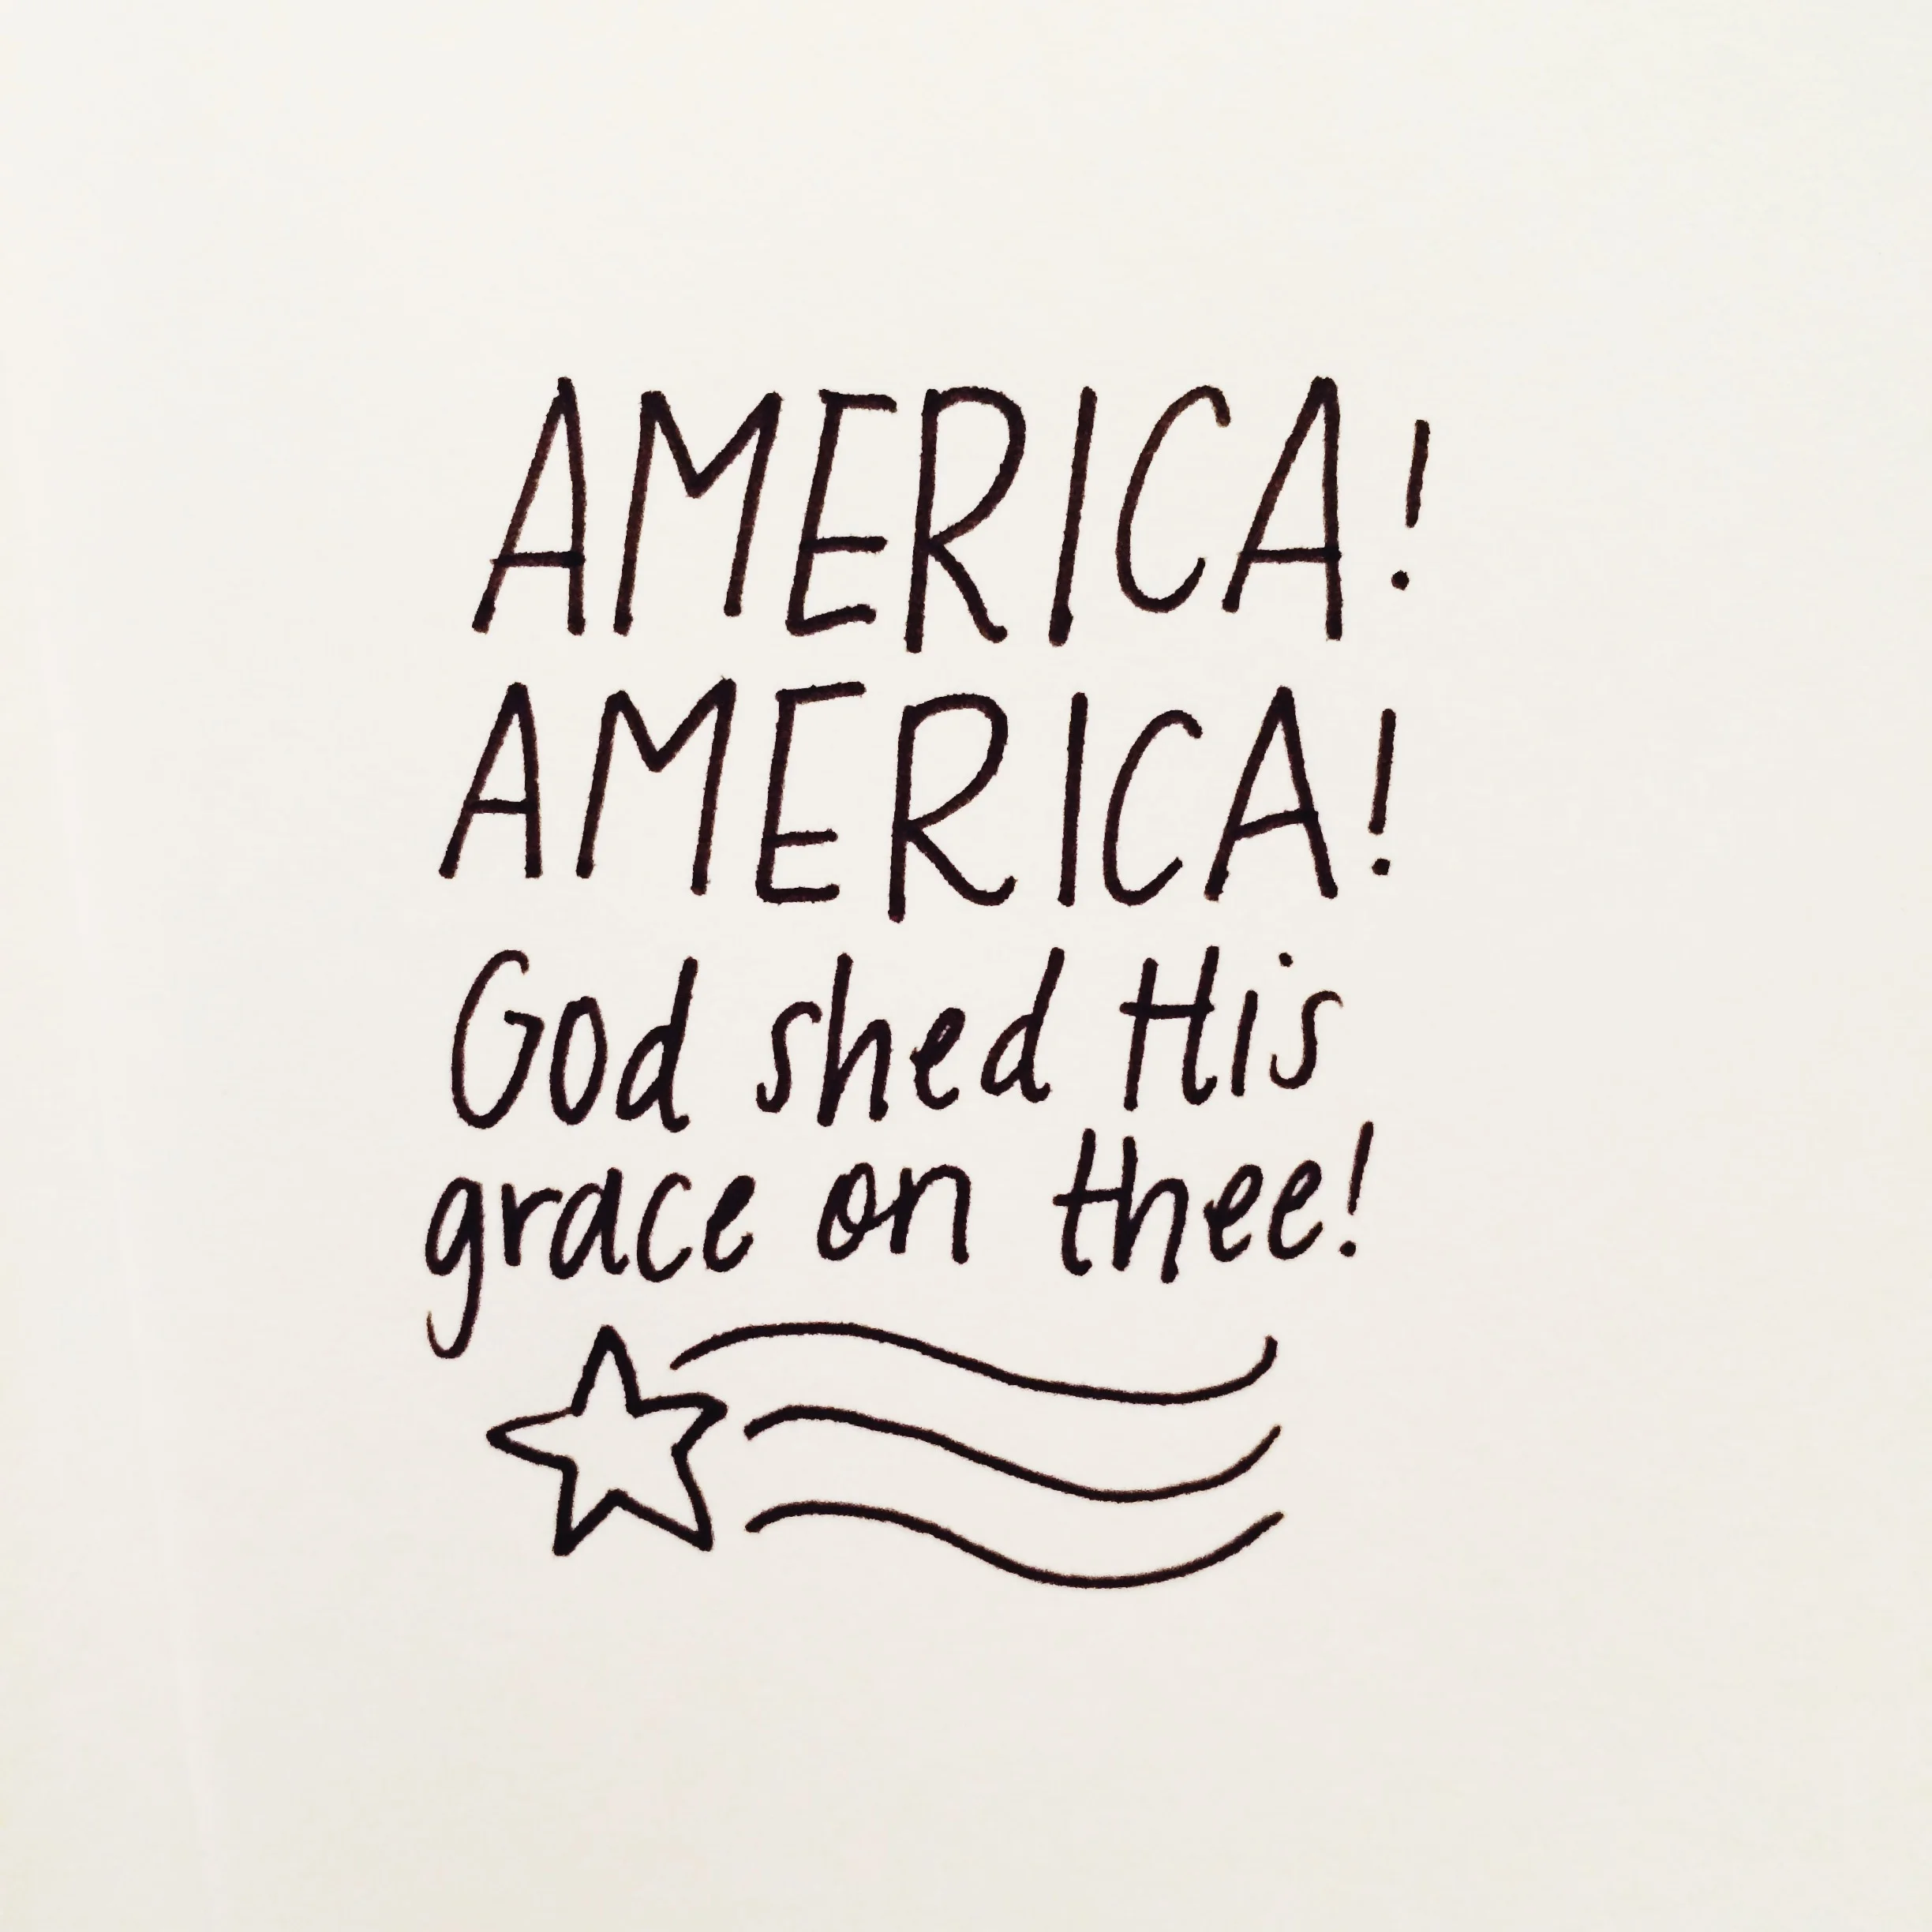 AMERICA!
AMERICA!
God shed His
grace on thee!